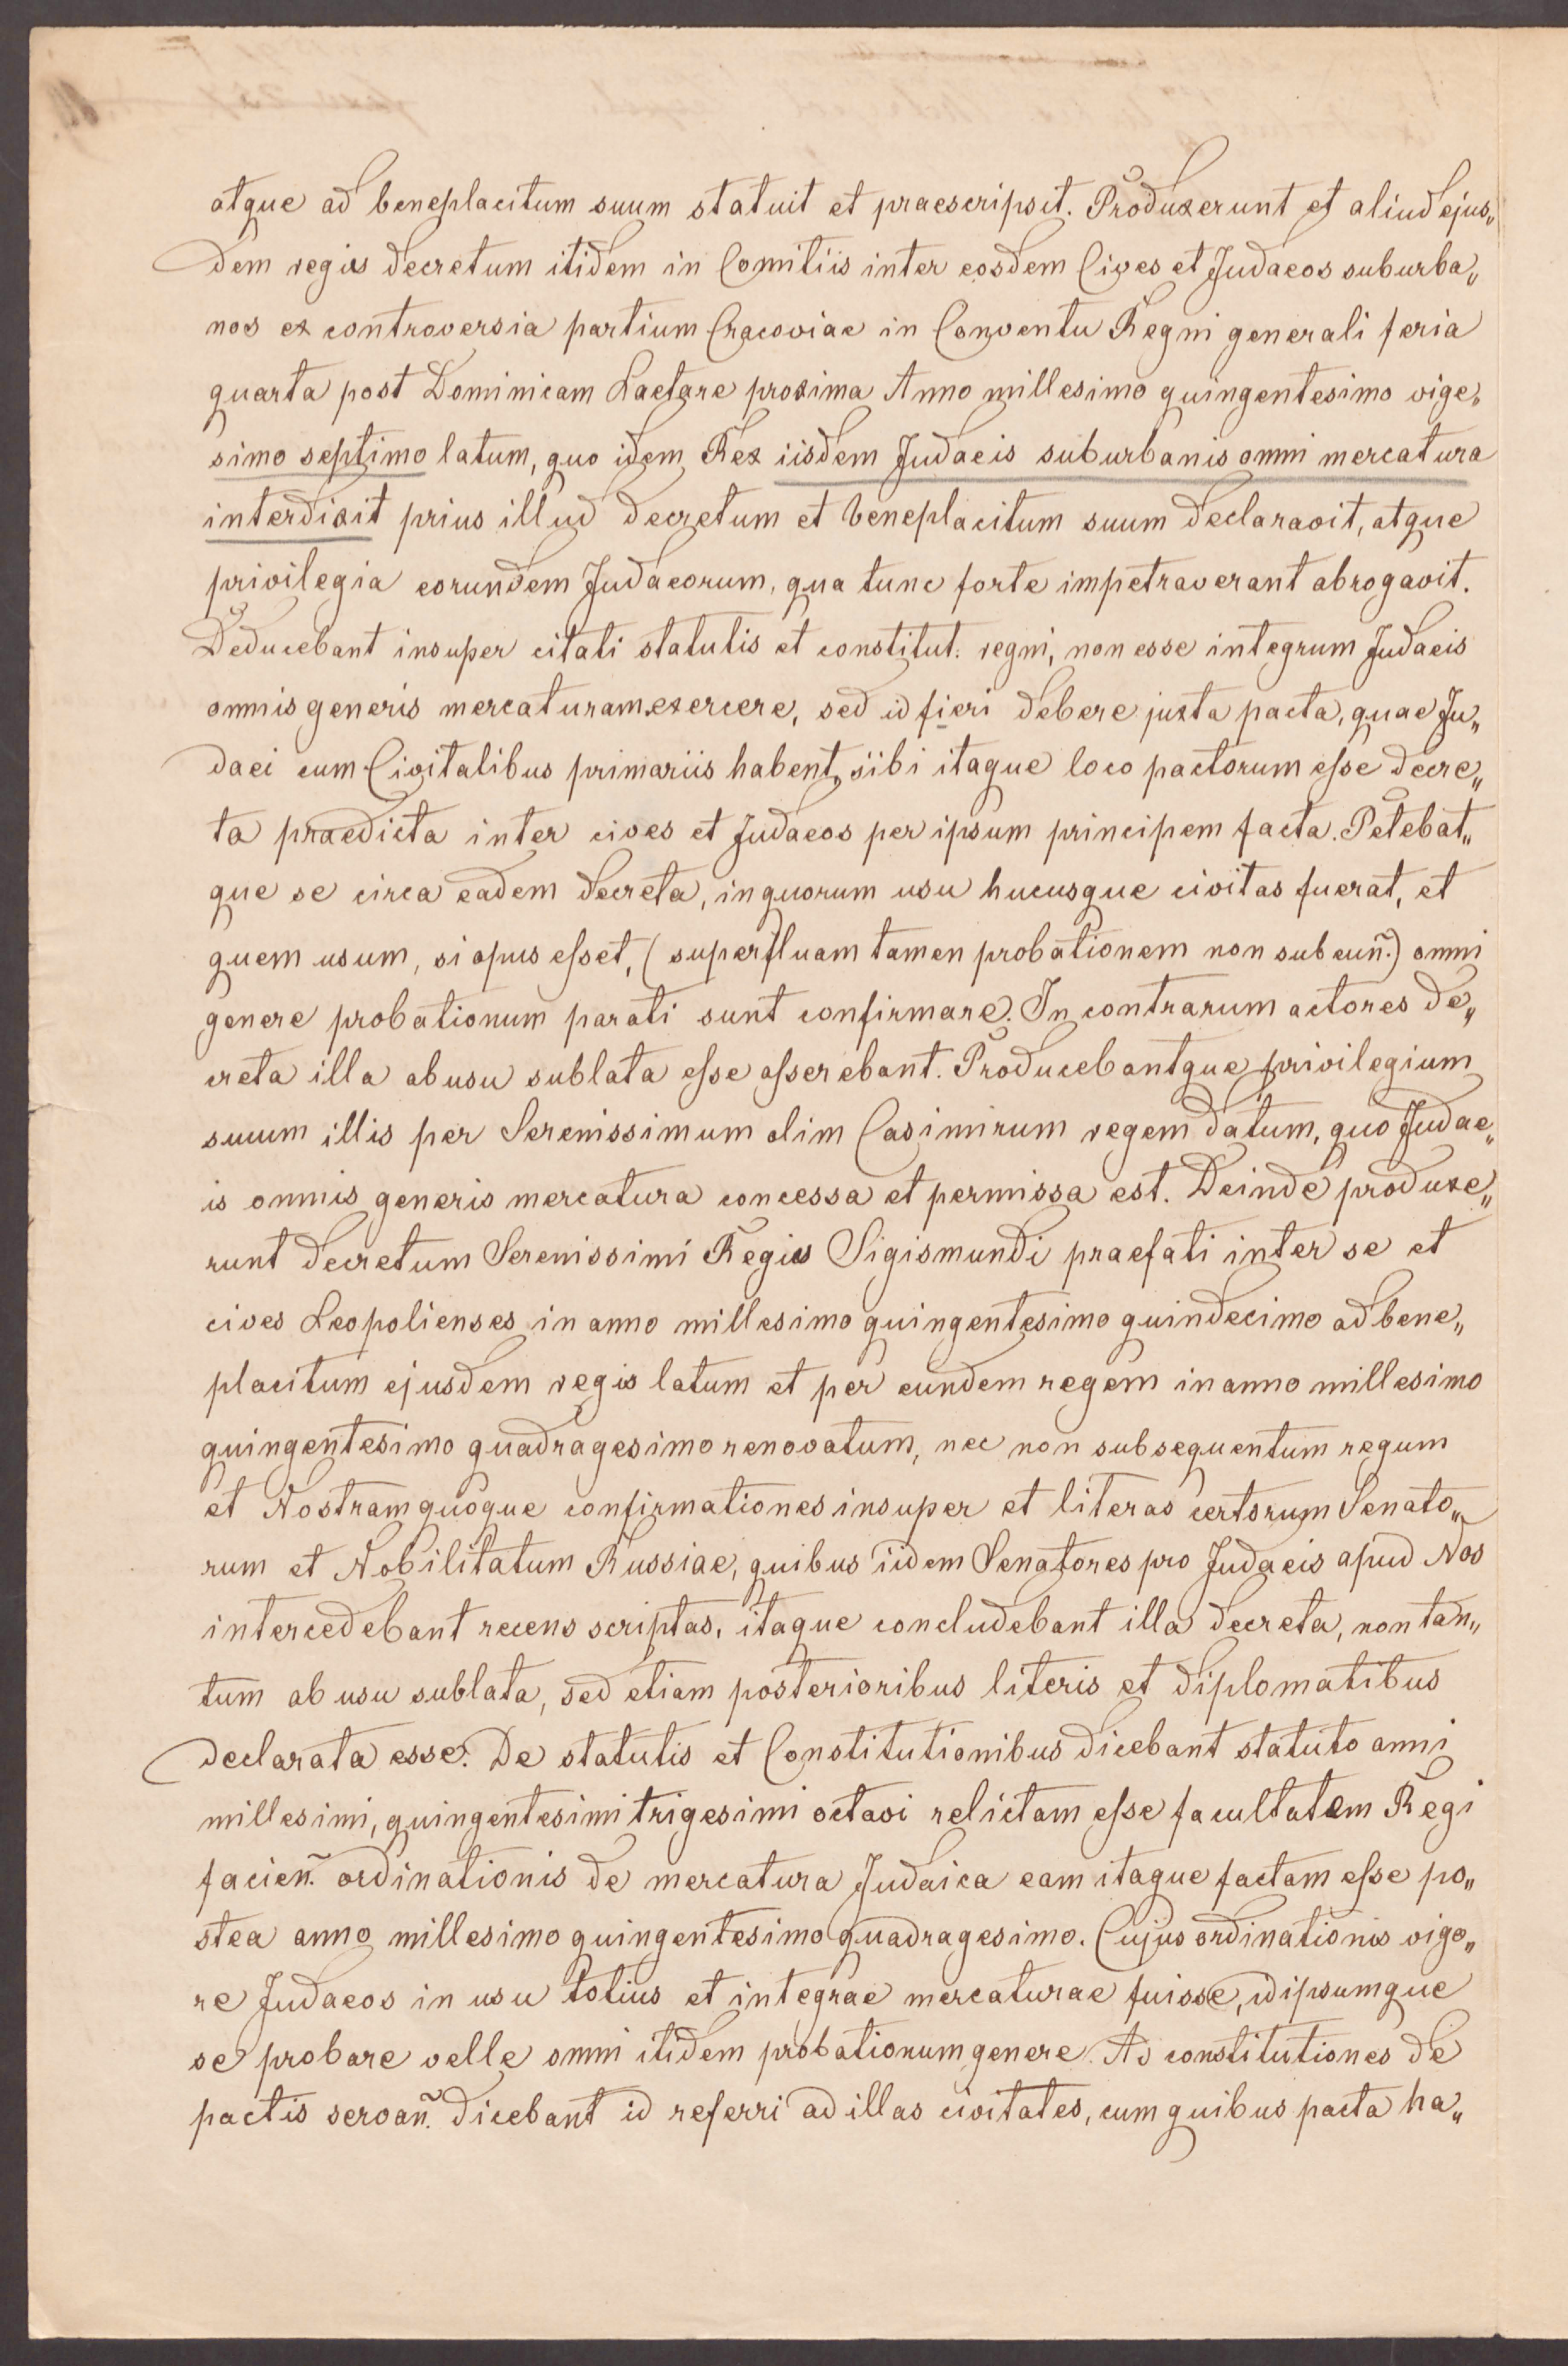 atque ad beneplacitum suum statuit et praescripsit. Produxerunt et aliud ejus„
dem regis decretum itidem in Comitiis inter eosdem Cives et Judaeos suburba„
nos ex controversia partium Cracoviae in Conventu Regni generali feria
quarta post Dominicam Laetare proxima Anno millesimo quingentesimo vige„
simo septimo latum, quo idem Rex iisdem Judaeis suburbanis omni mercatura
interdixit prius illud decretum et beneplacitum suum declaravit, atque
privilegia eorundem Judaeorum, qua tunc forte impetraverant abrogavit.
Deducebant insuper citati statutis et constitut. regni, non esse integrum Judaeis
omnis generis mercaturam exercere, sed id fieri debere juxta pacta, quae Ju„
daei cum Civitatibus primariis habent, sibi itaque loco pactorum esse decre„
ta praedicta inter cives et Judaeos per ipsum principem facta. Petebat„
que se circa eadem decreta, in quorum usu hucusque civitas fuerat, et
quem usum, si opus esset, (superfluam tamen probationem non subeuñ.) omni
genere probationum parati sunt confirmare. In contrarum actores de„
creta illa ab usu sublata esse asserebant. Producebantque privilegium
suum illis per Serenissimum olim Casimirum regem datum, quo Judae„
is omnis generis mercatura concessa et permissa est. Deinde produxe„
runt decretum Serenissimi Regis Sigismundi praefati inter se et
cives Leopolienses in anno millesimo quingentesimo quindecimo ad bene„
placitum ejusdem regis latum et per eundem regem in anno millesimo
quingentesimo quadragesimo renovatum, nec non subsequentum regum
et Nostram quoque confirmationes insuper et literas certorum Senato„
rum et Nobilitatum Russiae, quibus iidem Senatores pro Judaeis apud Nos
intercedebant recens scriptas, itaque concludebant illa decreta, non tan„
tum ab usu sublata, sed etiam posterioribus literis et diplomatibus
declarata esse. De statutis et Constitutionibus dicebant statuto anni
millesimi, quingentesimi trigesimi octavi relictam esse facultatem Regi
facieñ. ordinationis de mercatura Judaica eam itaque factam esse po„
stea anno millesimo quingentesimo quadragesimo. Cujus ordinationis vigo„
re Judaeos in usu totius et integrae mercaturae fuisse, idipsumque
se probare velle omni itidem probationum genere. Ad constitutiones de
pactis servañ. dicebant id referri ad illas civitates, cum quibus pacta ha„